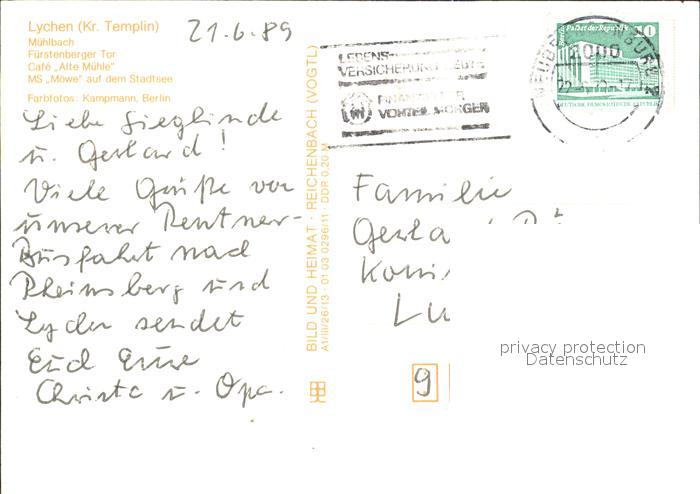 Lychen (Kr. Templin)
Mühlbach
Fürstenberger Tor
Café „Alte Mühle"
MS „Möwe" auf dem Stadtsee
Farbfotos: Kampmann, Berlin
21.6.89
Liebe Sieglinde
u. Gerhard!
Viele Grüße von
unserer Rentner-
Ausfahrt nach
Rheinsberg und
Lychen sendet
Euch Eure
Christa u. Opa.
BILD UND HEIMAT · REICHENBACH (VOGTL)
A1/III/26/13 · 01 03 0296/11 · DDR 0,20 M
LEBENS-
VERSICHERUNG HEUTE
VORTEIL MORGEN
Palast der Republik
10
DEUTSCHE DEMOKRATISCHE REPUBLIK
2000
Familie
Gerha
Köni
Lu
9
privacy protection
Datenschutz